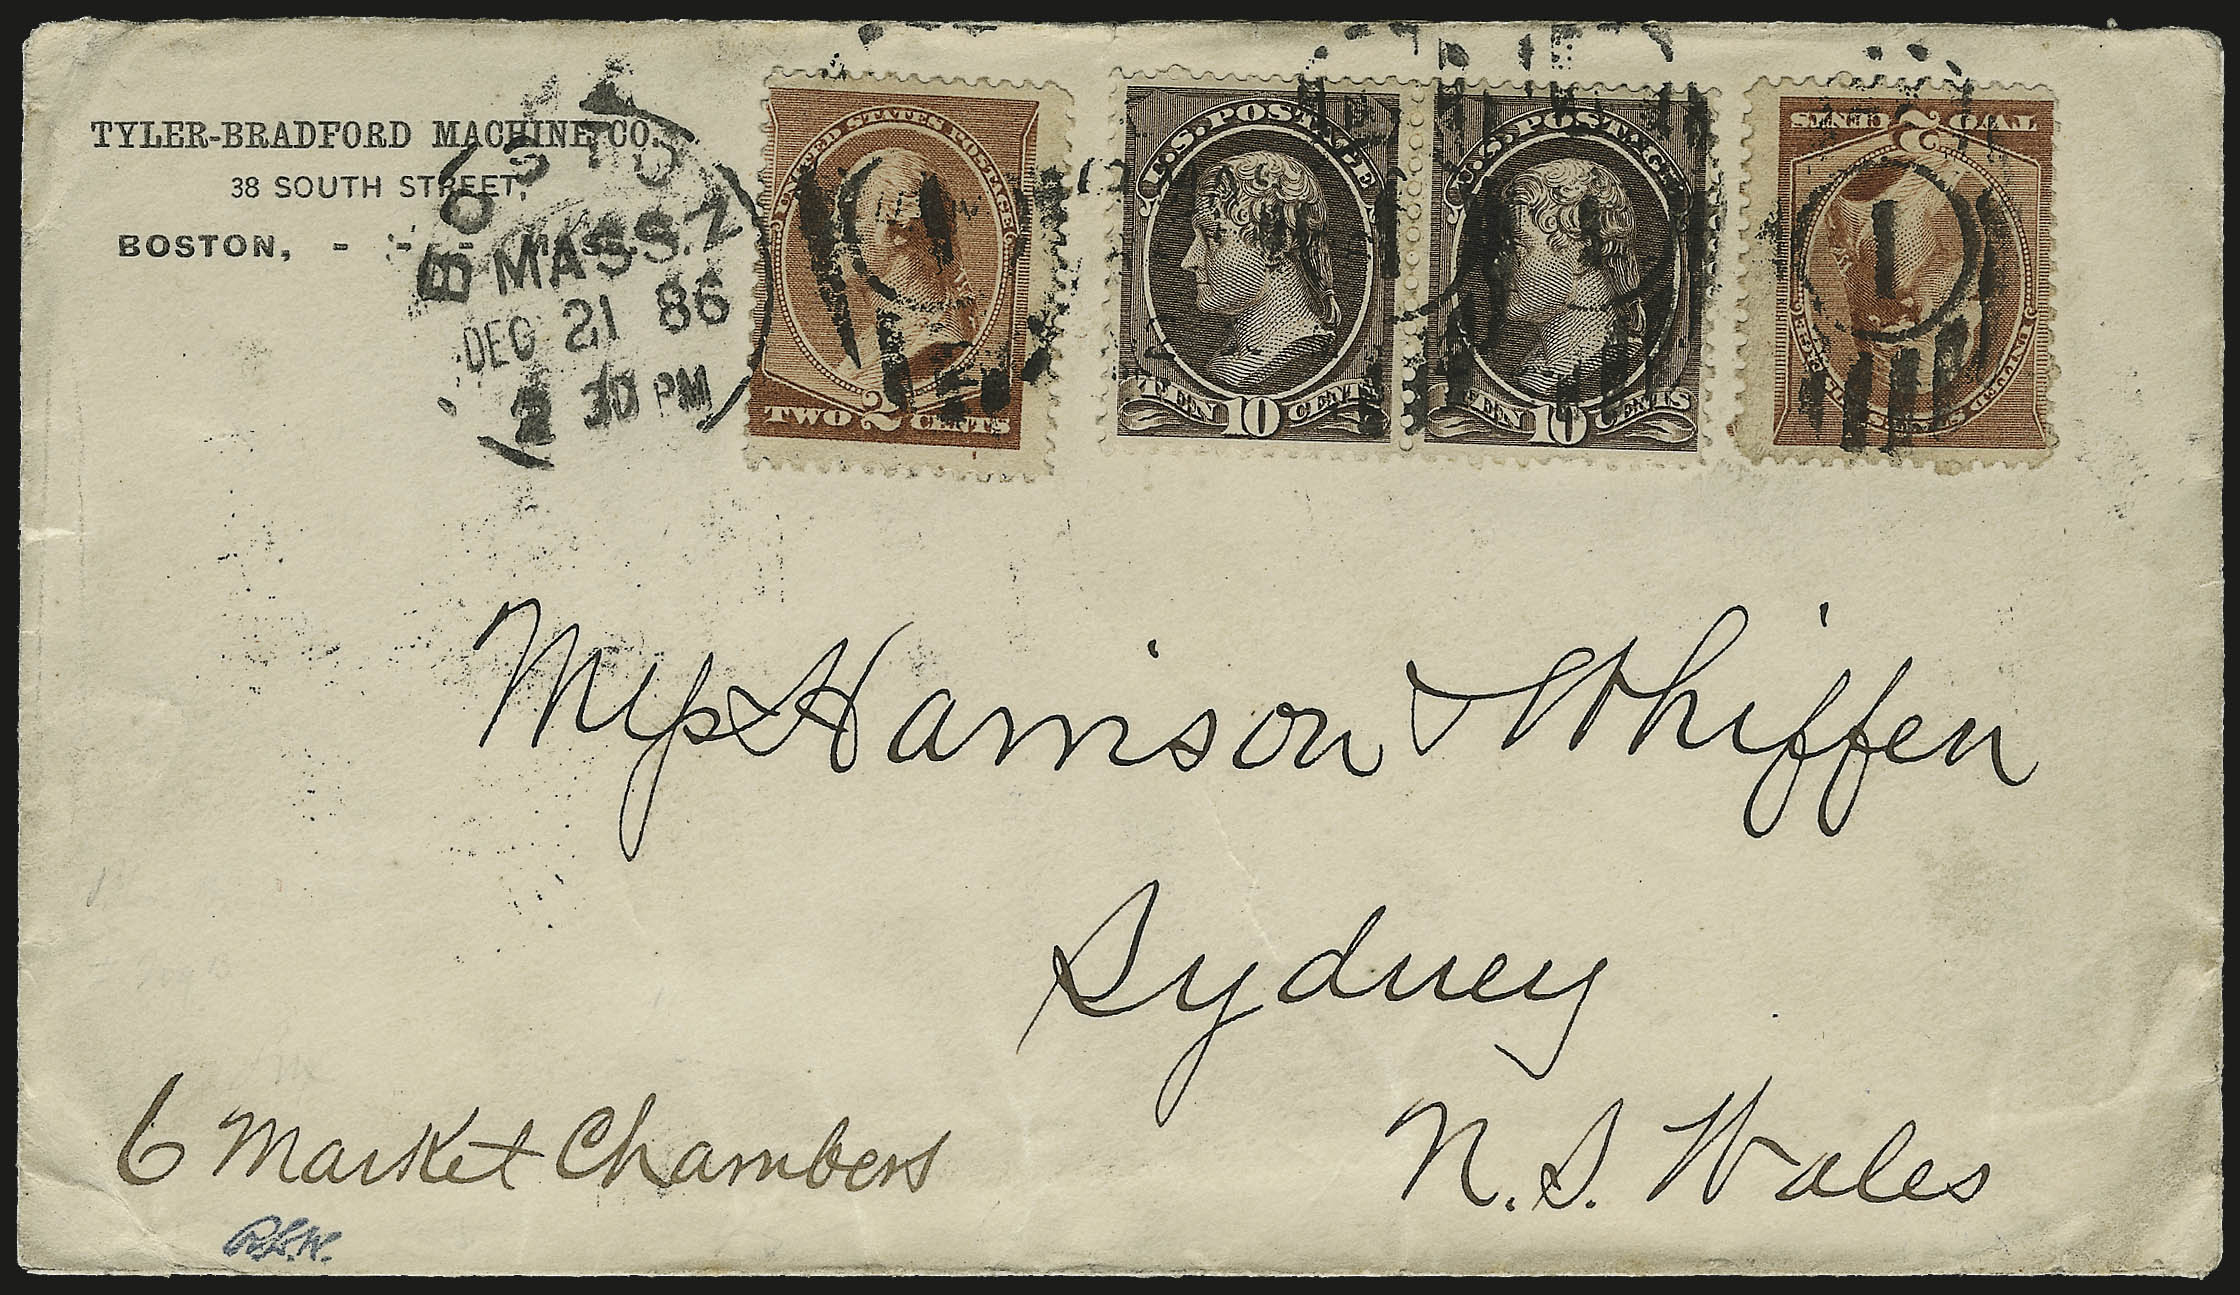 TYLER-BRADFORD MACHINE CO.
38 SOUTH STREET,
BOSTON, - - - MASS.
BOSTON
MASS.
DEC 21 86
2 30 PM
UNITED STATES POSTAGE
TWO 2 CENTS
U.S. POSTAGE
TEN 10 CENTS
U.S. POSTAGE
TEN 10 CENTS
UNITED STATES POSTAGE
TWO 2 CENTS
1
Harrison & Whiffen
Sydney
N. S. Wales
6 Market Chambers